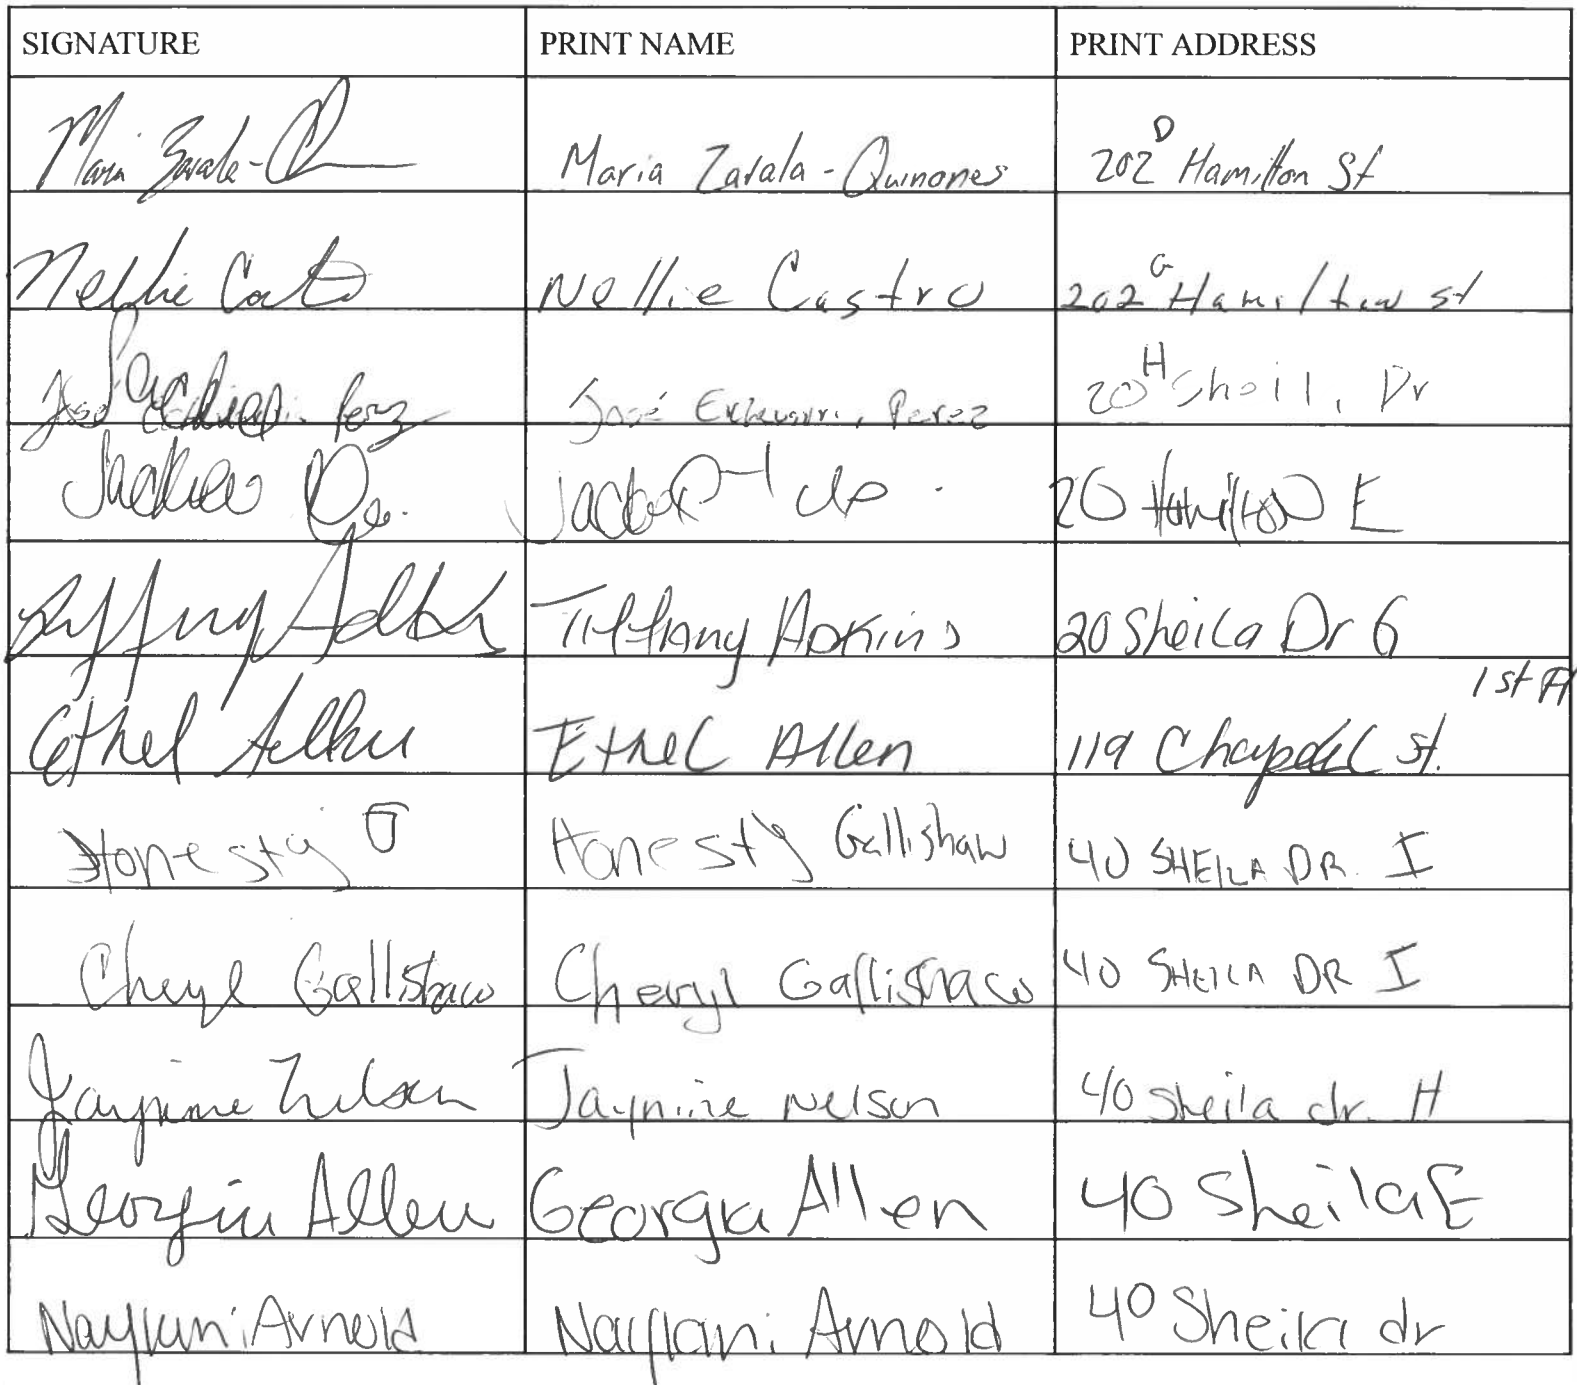 SIGNATURE PRINT NAME PRINT ADDRESS
Maria Zavala- Maria Zavala-Quinones 202 D Hamilton St
Nellie Castro Nellie Castro 202 G Hamilton st
José Perez José Perez 20 H Dr
20 Hamilton E
Tiffany Adkins Tiffany Adkins 20 Sheila Dr G
1st Fl
Ethel Allen Ethel Allen 119 Chapel St.
Honesty G Honesty Gallishaw 40 SHEILA DR. I
Cheryl Gallishaw Cheryl Gallishaw 40 SHEILA DR I
Jaynine Nelson Jaynine Nelson 40 Sheila dr. H
Georgia Allen Georgia Allen 40 Sheila E
Naylani Arnold Naylani Arnold 40 Sheila dr